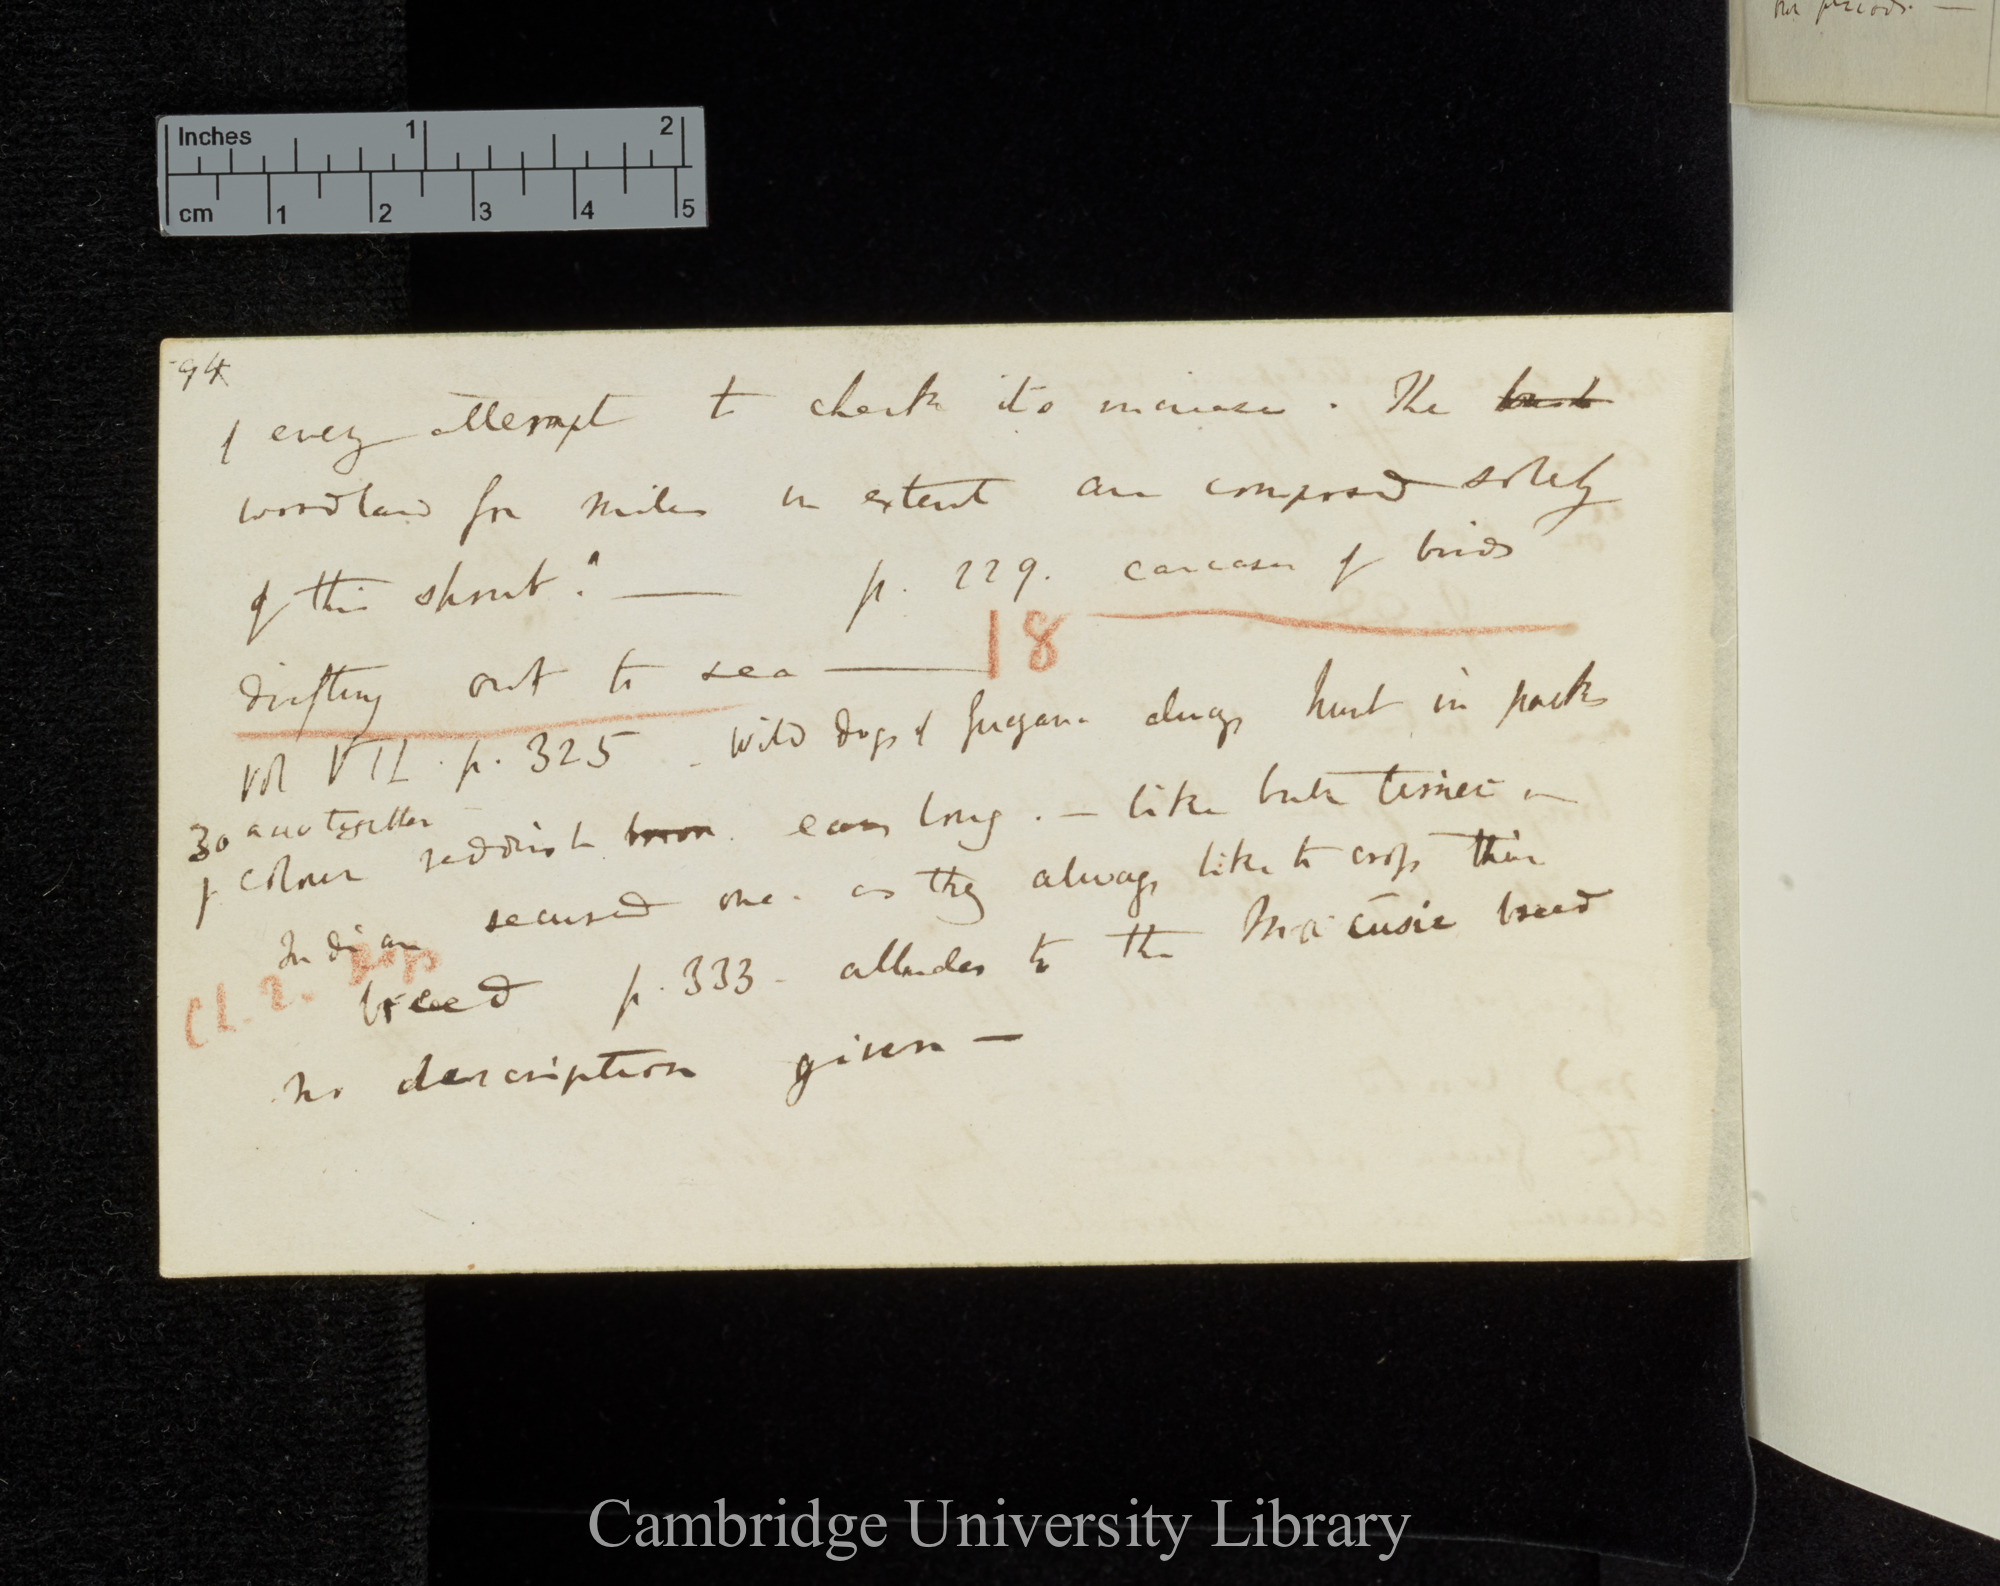 our periods. —
Inches 1 2
cm 1 2 3 4 5
94
of every attempt to check its increase. The
woodland for miles in extent are composed solely
of this shrub." — p. 229. carcases of birds
18
drifting out to sea —
Vol VII. p. 325 - Wild dogs of Guyana always hunt in packs
30 around together
of colour reddish brown. ears long. — like bull terrier —
Indian secured one. as they always like to cross their
Ch. 2. Dogs
breed p. 333 - alludes to the Macusie breed
no description given —
Cambridge University Library